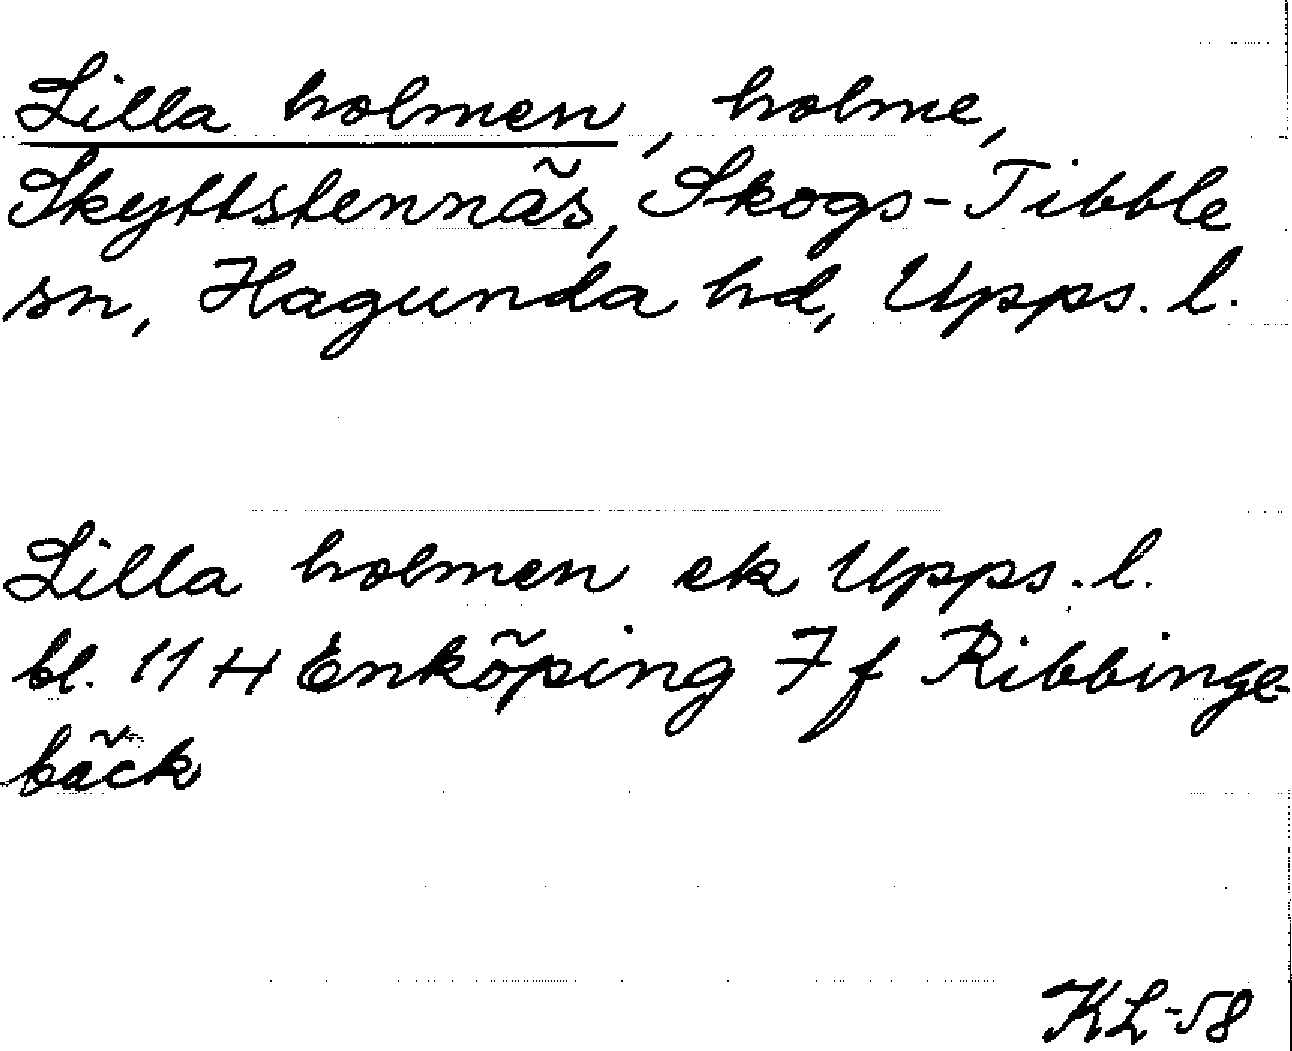 Lilla holmen, holme,
Skyttstennäs, Skogs-Tibble
sn, Hagunda hd, Upps. l.
Lilla holmen ek Upps. l.
bl. 11 H Enköping 7 f Ribbinge-
bäck
KL-58